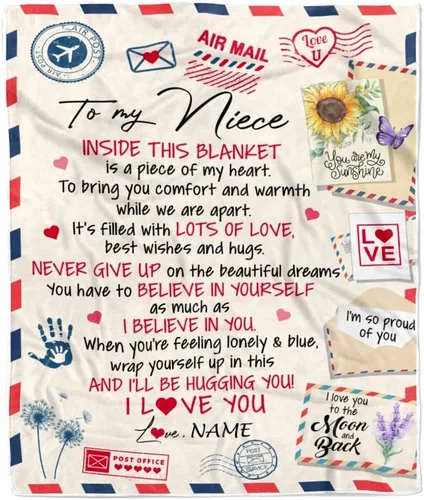 AIR POST
AIR POST
AIR MAIL
Love
U
To my Niece
INSIDE THIS BLANKET
is a piece of my heart.
To bring you comfort and warmth
while we are apart.
It's filled with LOTS OF LOVE,
best wishes and hugs.
NEVER GIVE UP on the beautiful dreams
You have to BELIEVE IN YOURSELF
as much as
I BELIEVE IN YOU.
When you're feeling lonely & blue,
wrap yourself up in this
AND I'LL BE HUGGING YOU!
I L❤VE YOU
L❤ve, NAME
You are my
Sunshine
L❤
VE
I'm so proud
of you
I love you
to the
Moon
and
Back
POST OFFICE
POST
SERVICE